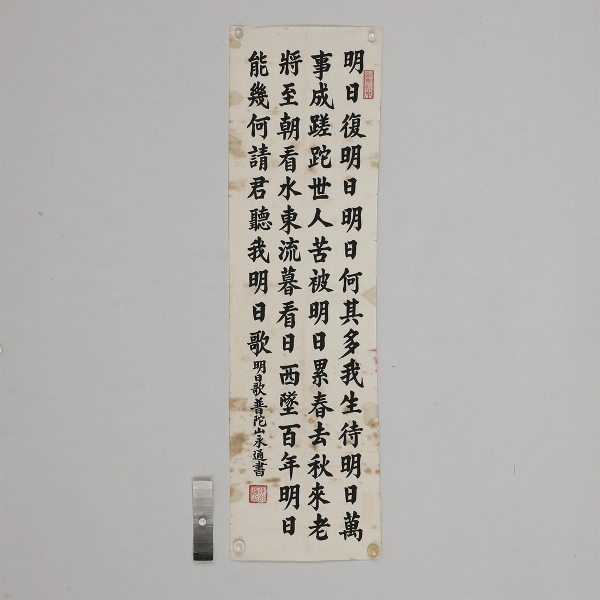 明日復明日明日何其多我生待明日萬
事成蹉跎世人苦被明日累春去秋來老
將至朝看水東流暮看日西墜百年明日
能幾何請君聽我明日歌
明日歌普陀山永通書